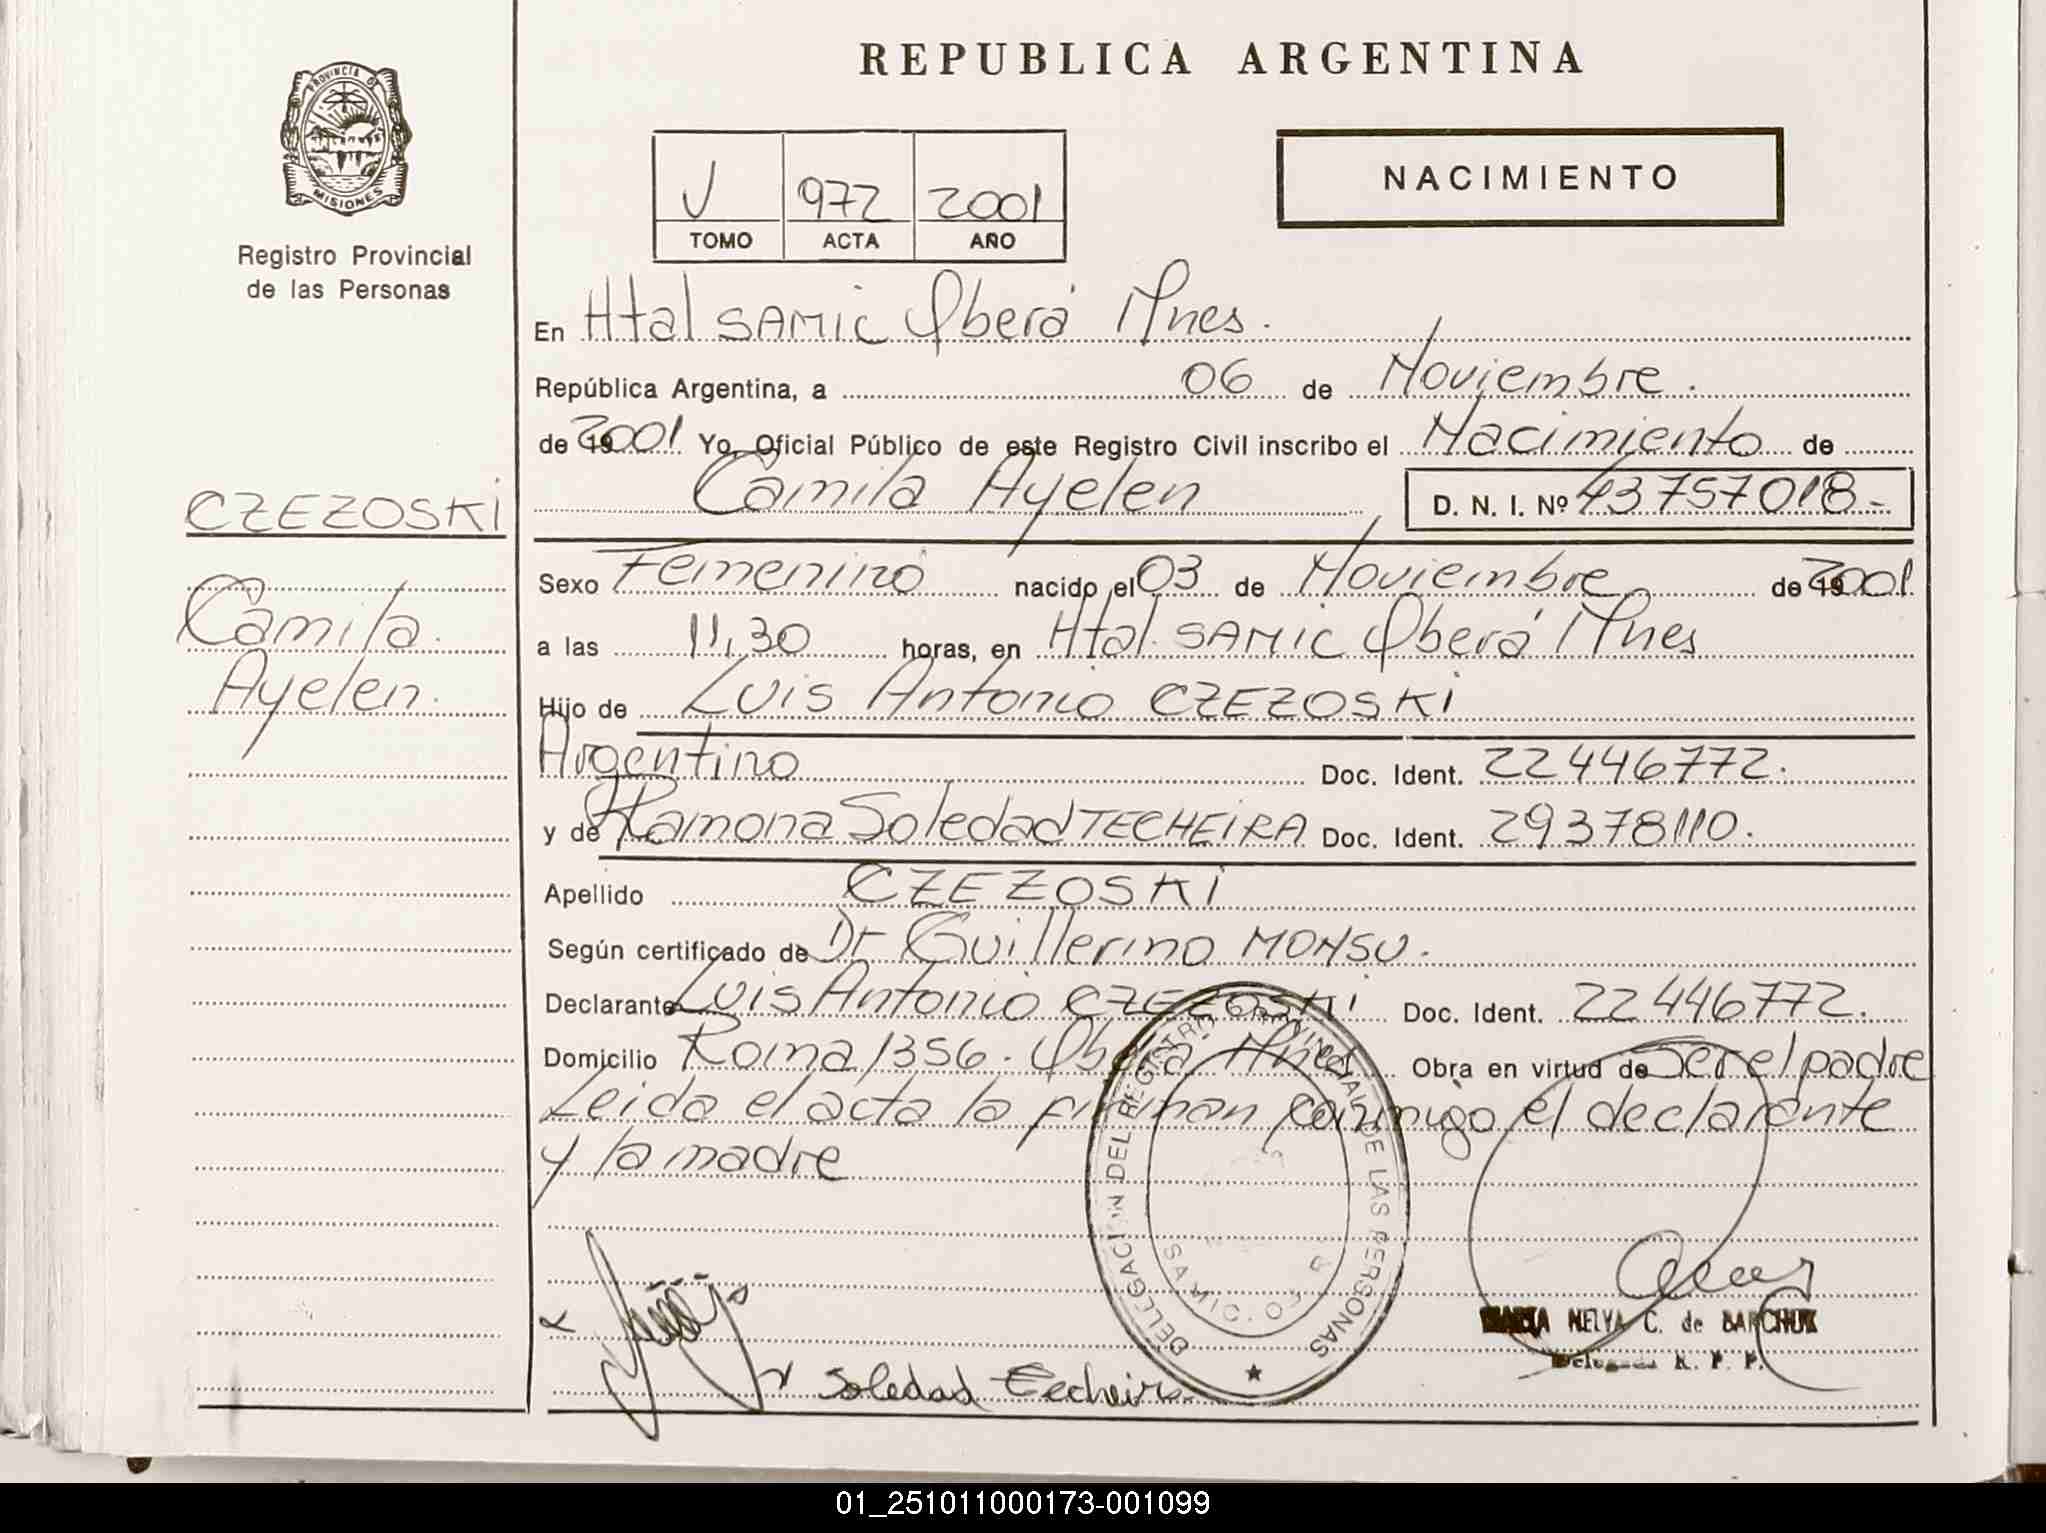 PROVINCIA DE
MISIONES
Registro Provincial
de las Personas
CZEZOSKI
Camila
Ayelen.
REPUBLICA ARGENTINA
V 972 2001
TOMO ACTA AÑO
NACIMIENTO
En Htal SAMIC Oberá Mnes.
República Argentina, a 06 de Noviembre.
de 2001 Yo, Oficial Público de este Registro Civil inscribo el Nacimiento de
Camila Ayelen D. N. I. Nº 43757018-
Sexo Femenino nacido el 03 de Noviembre de 2001
a las 11,30 horas, en Htal. SAMIC Oberá Mnes
Hijo de Luis Antonio CZEZOSKI
Argentino Doc. Ident. 22446772.
y de Ramona Soledad TECHEIRA Doc. Ident. 29378110.
Apellido CZEZOSKI
Según certificado de Dr Guillermo MONSU.
Declarante Luis Antonio CZEZOSKI Doc. Ident. 22446772.
Domicilio Roma 1356. Oberá Mnes Obra en virtud de Ser el padre
Leida el acta la firman conmigo el declarante
y la madre
DELEGACION DEL REGISTRO PROVINCIAL DE LAS PERSONAS
MARIA NELYA C. de BARCHUK
Delegada R. P. P.
Soledad Techeira
01_251011000173-001099